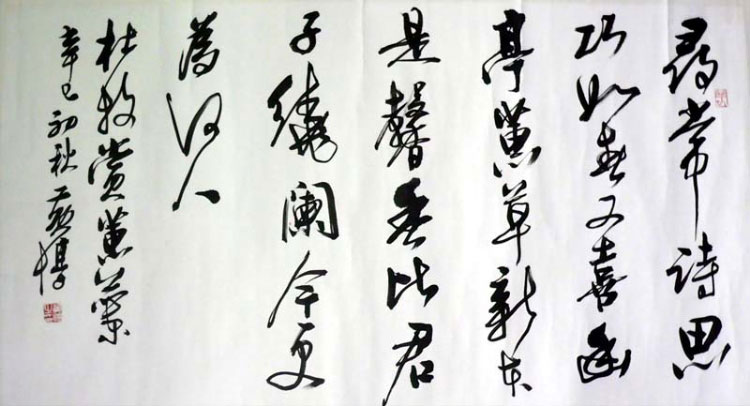 尋常詩思
巧如春又喜幽
亭蕙草新本
是馨香比君
子繞闌今更
為何人
杜牧賞蕙
辛巳初秋